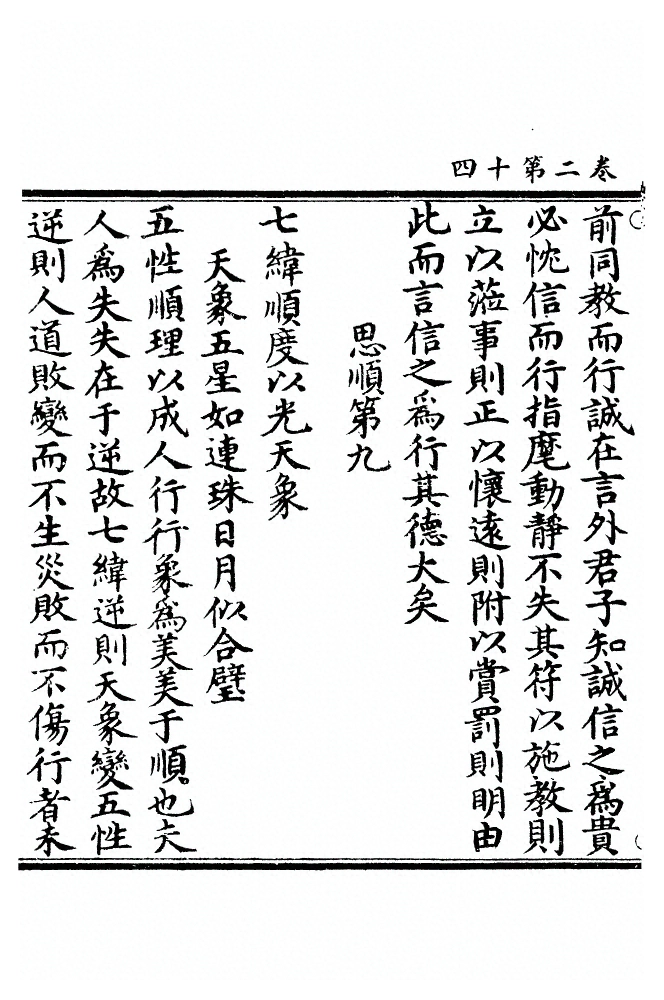 卷二第十四
前同教而行誠在言外君子知誠信之爲貴
必忱信而行指麾動靜不失其符以施教則
立以蒞事則正以懷遠則附以賞罰則明由
此而言信之爲行其德大矣
思順第九
七緯順度以光天象
天象五星如連珠日月似合璧
五性順理以成人行行象爲美美于順也夫
人爲失失在于逆故七緯逆則天象變五性
逆則人道敗變而不生災敗而不傷行者未